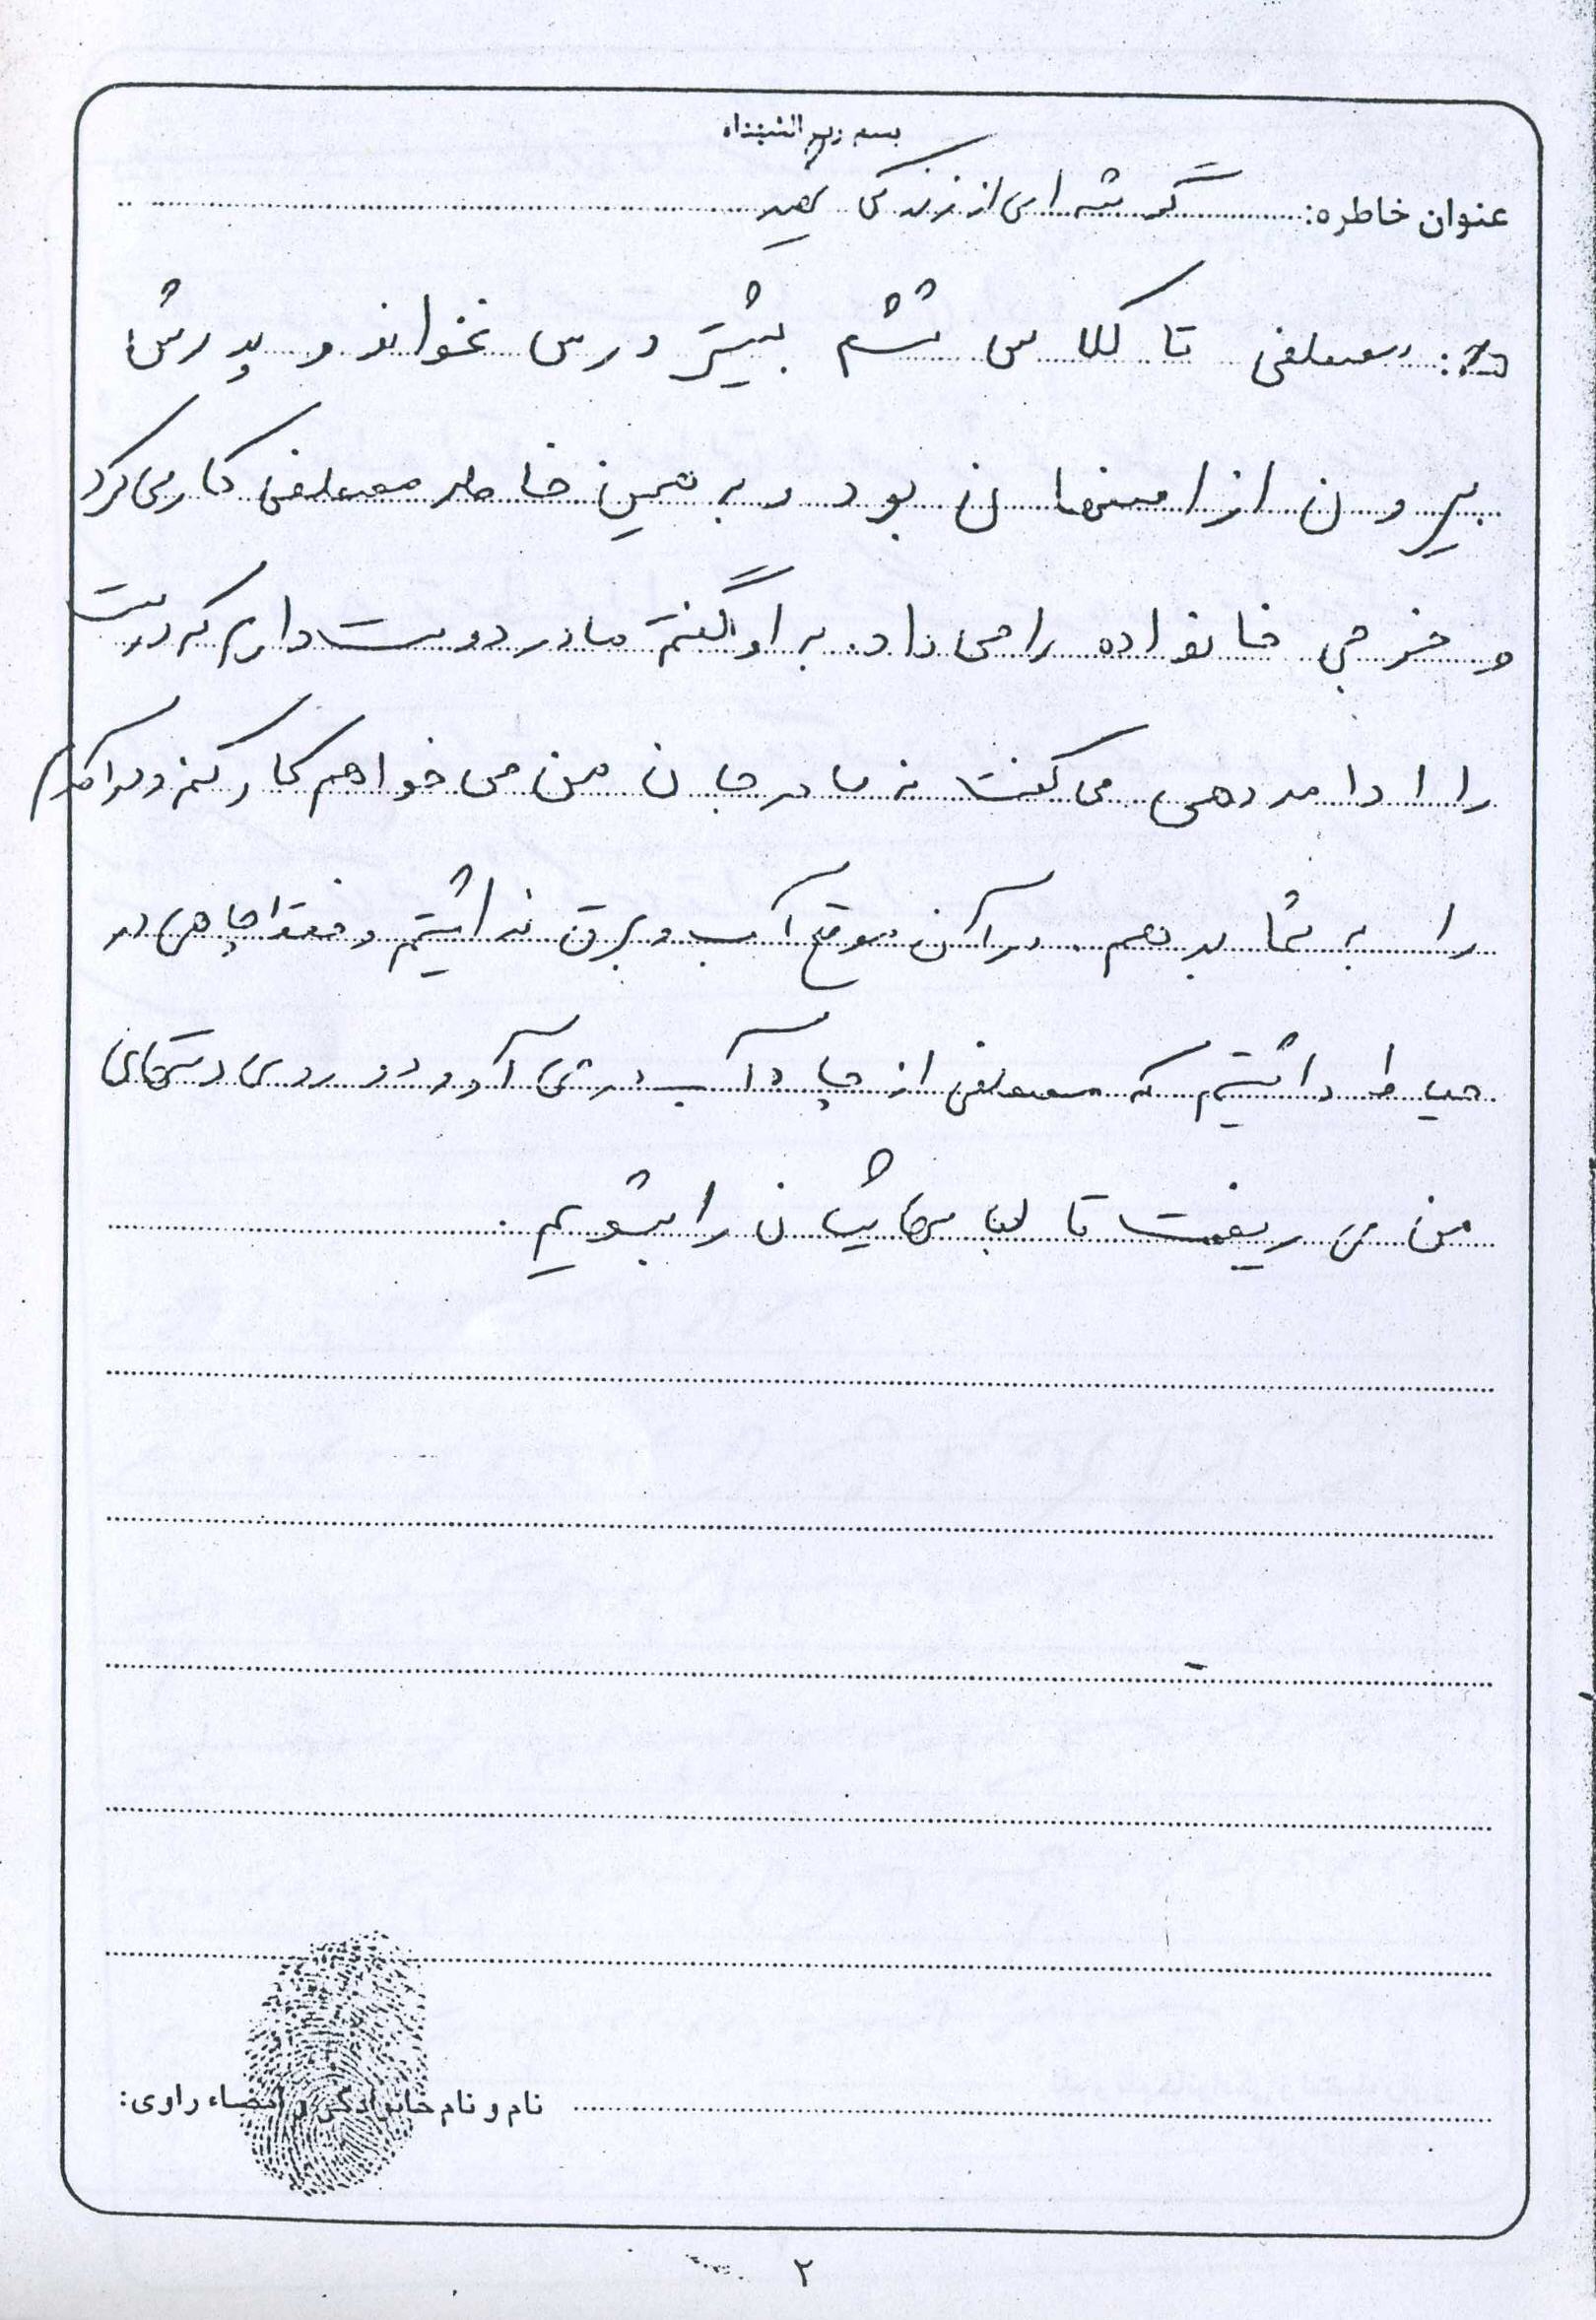 بسم رب الشهداء
عنوان خاطره: گوشه ای از زندگی شهید
ج: مصطفی تا کلاس ششم بیشتر درس نخواند و پدرش
بیرون از اصفهان بود و به همین خاطر مصطفی کار می کرد
و خرجی خانواده را می داد. به او گفتم مادر دوست دارم که درست
را ادامه دهی می گفت نه مادر جان من می خواهم کار کنم و درآمدم
را به شما بدهم. در آن موقع آب و برق نداشتیم و فقط چاهی در
حیاط داشتیم که مصطفی از چاه آب در می آورد و روی دستهای
من می ریخت تا لباسهایشان را بشویم.
نام و نام خانوادگی و امضاء راوی:
۲